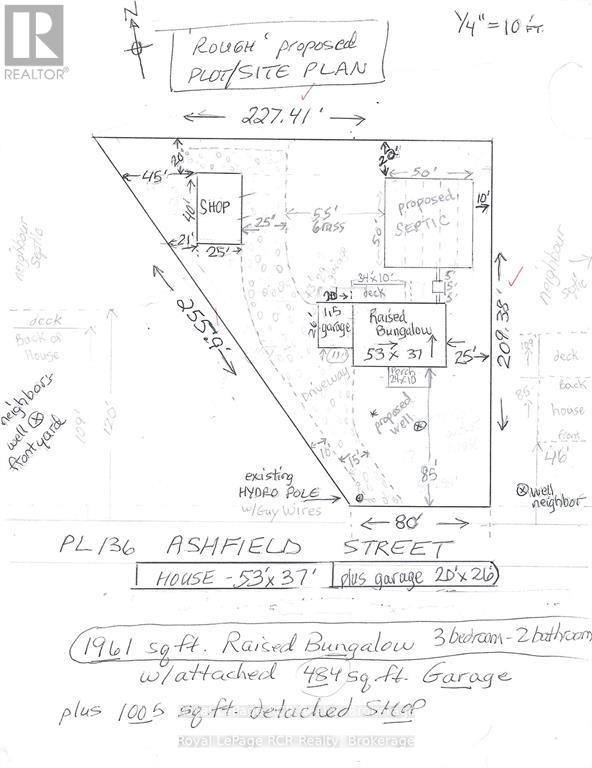 REALTOR®
N
'ROUGH' proposed
PLOT/SITE PLAN
1/4" = 10 FT.
227.41'
20'
45'
40'
SHOP
21'
25'
25'
55'
Grass
20'
50'
50'
proposed
SEPTIC
10'
neighbour
septic
neighbour
255.9'
209.38'
34x10'
deck
5'
5'
5'
20'
26'
garage
Raised
Bungalow
53 x 37
25'
Porch
24x10
Driveway
* proposed
well
85'
10'
15'
deck
Back of
House
neighbors
well
front yard
109'
120'
deck
Back
house
front
85'
46'
well
neighbor
existing
HYDRO POLE
w/Guy Wires
80'
PL 136 ASHFIELD STREET
HOUSE - 53'x 37' plus garage 20'x 26'
1961 sq ft. Raised Bungalow 3 bedroom - 2 bathroom
w/attached 484 sq ft. Garage
plus 1005 sq ft. detached SHOP
Royal LePage RCR Realty, Brokerage